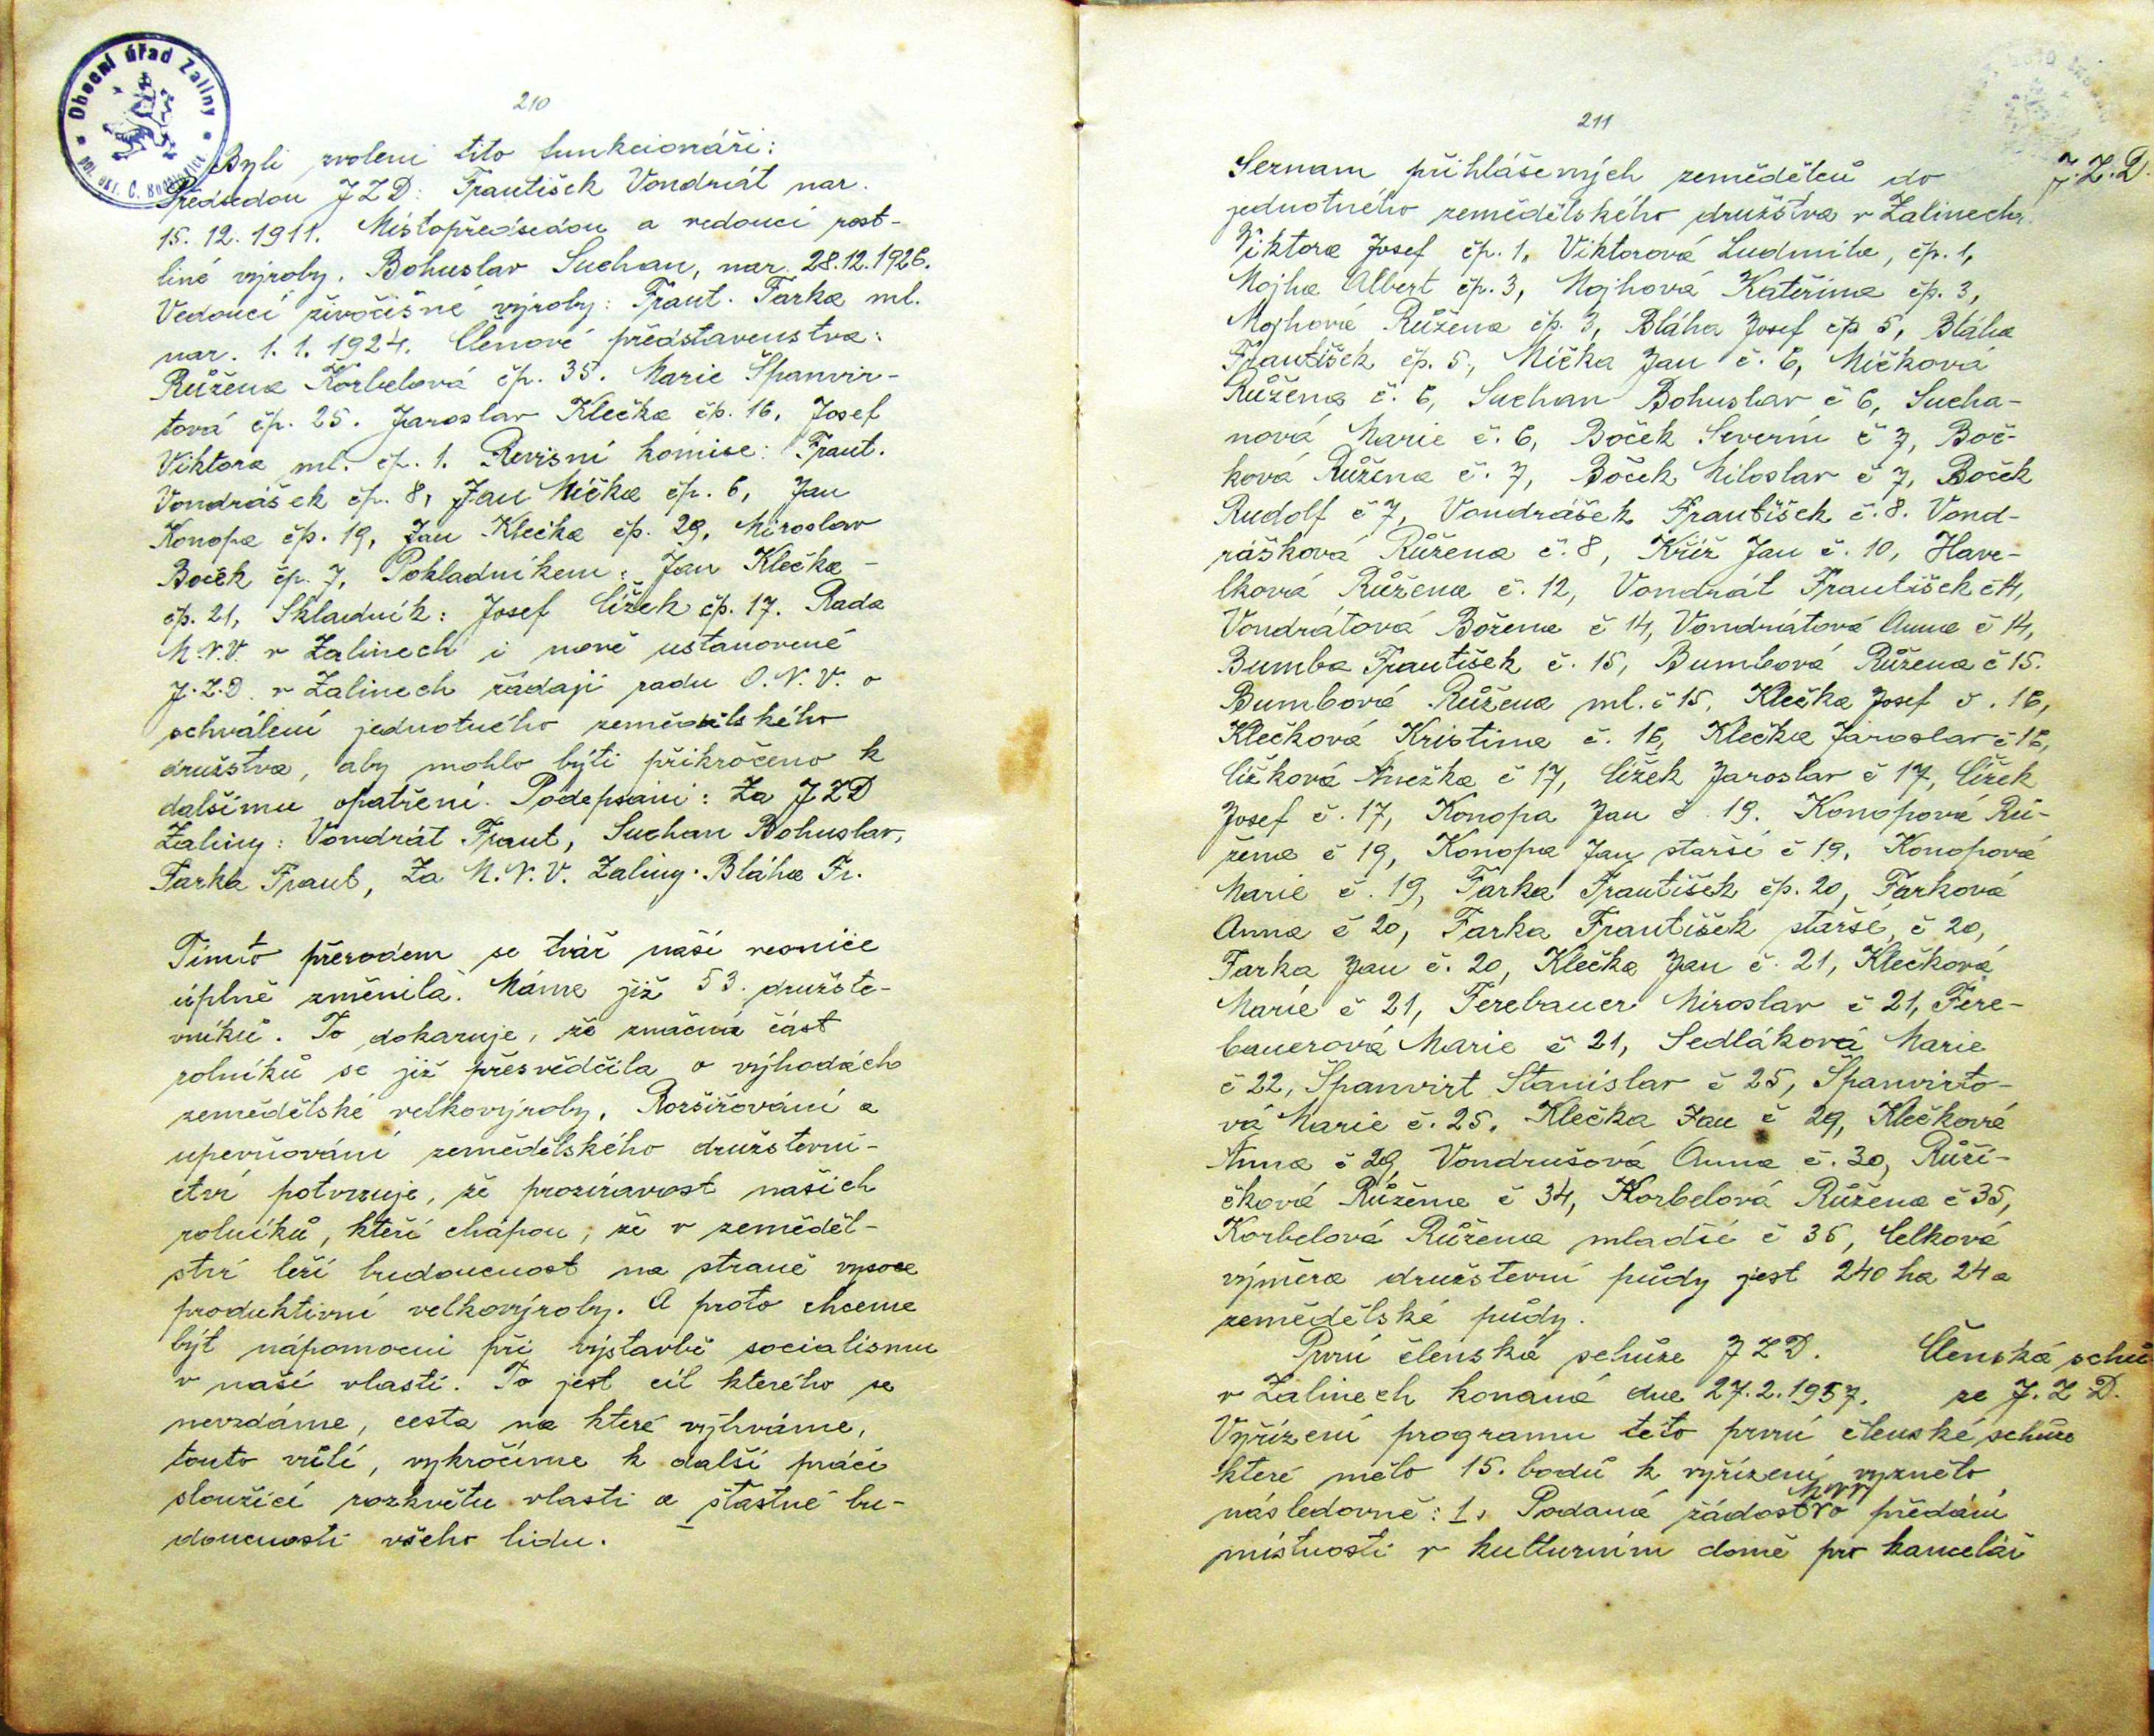 Obecní úřad Zaliny
210
Byli zvoleni tito funkcionáři:
Předsedou JZD: František Vondrát nar.
15. 12. 1911. Místopředsedou a vedoucí rost-
liné výroby. Bohuslav Suchan, nar. 28.12.1926.
Vedoucí živočišné výroby: Frant. Farka ml.
nar. 1. 1. 1924. Členové představenstva:
Růžena Korbelová čp. 35. Marie Španvir-
tová čp. 25. Jaroslav Klečka čp. 16, Josef
Viktora ml. čp. 1. Revisní komise: Frant.
Vondrášek čp. 8, Jan Mička čp. 6, Jan
Konopa čp. 19, Jan Klečka čp. 29, Miroslav
Boček čp. 7, Pokladníkem: Jan Klečka -
čp. 21, Skladník: Josef Čížek čp. 17. Rada
M.N.V. v Zalinech i nově ustanovené
J.Z.D. v Zalinech žádají radu O.N.V. o
schválení jednotného zemědělského
družstva, aby mohlo býti přikročeno k
dalšímu opatření. Podepsáni: Za JZD
Zaliny: Vondrát Frant, Suchan Bohuslav,
Farka Frant, Za M.N.V. Zaliny. Bláha Fr.
Tímto převodem se tvář naší vesnice
úplně změnila. Máme již 53. družste-
vníků. To dokazuje, že značná část
rolníků se již přesvědčila o výhodách
zemědělské velkovýroby. Rozšiřování a
upevňování zemědělského družstevni-
ctví potvrzuje, že prozíravost našich
rolníků, kteří chápou, že v zeměděl-
ství leží budoucnost na straně vysoce
produktivní velkovýroby. A proto chceme
být nápomocni při výstavbě socialismu
v naší vlasti. To jest cíl kterého se
nevzdáme, cesta na které vyhráme,
touto vůlí, vykročíme k další práci
sloužící rozkvětu vlasti a šťastné bu-
doucnosti všeho lidu.
211
Seznam přihlášených zemědělců do J.Z.D.
jednotného zemědělského družstva v Zalinech.
Viktora Josef čp. 1, Viktorová Ludmila, čp. 1,
Mojha Albert čp. 3, Mojhová Kateřina čp. 3,
Mojhová Růžena čp. 3, Bláha Josef čp 5, Bláha
František čp. 5, Mička Jan č. 6, Mičková
Růžena č. 6, Suchan Bohuslav č 6, Sucha-
nová Marie č. 6, Boček Severín č 7, Boč-
ková Růžena č. 7, Boček Miloslav č 7, Boček
Rudolf č 7, Vondrášek František č. 8. Vond-
rášková Růžena č. 8, Kříž Jan č. 10, Have-
lková Růžena č. 12, Vondrát František č 14,
Vondrátová Božena č 14, Vondrátová Anna č 14,
Bumba František č. 15, Bumbová Růžena č 15.
Bumbová Růžena ml. č 15, Klečka Josef č. 16,
Klečková Kristina č. 16, Klečka Jaroslav č 16,
Čížková Anežka č 17, Čížek Jaroslav č 17, Čížek
Josef č. 17, Konopa Jan č 19. Konopová Rů-
žena č 19, Konopa Jan starší č 19, Konopová
Marie č. 19, Farka František čp. 20, Farková
Anna č 20, Farka František starší, č 20,
Farka Jan č. 20, Klečka Jan č. 21, Klečková
Marie č 21, Ferebauer Miroslav č 21, Fere-
bauerová Marie č 21, Sedláková Marie
č 22, Španvirt Stanislav č 25, Španvirto-
vá Marie č. 25. Klečka Jan č 29, Klečková
Anna č 29, Vondrušová Anna č. 30, Růži-
čková Růžena č 34, Korbelová Růžena č 35,
Korbelová Růžena mladší č 35, Celková
výměra družstevní půdy jest 240 ha 24 a
zemědělské půdy.
První členská schůze JZD. Členská schů
v Zalinech konaná dne 27.2.1957. ze J.Z D.
Vyřízení programu této první členské schůze
které mělo 15. bodů k vyřízení vyznělo
následovně: 1, Podaná žádost o předání
místnosti v kulturním domě pro kancelář